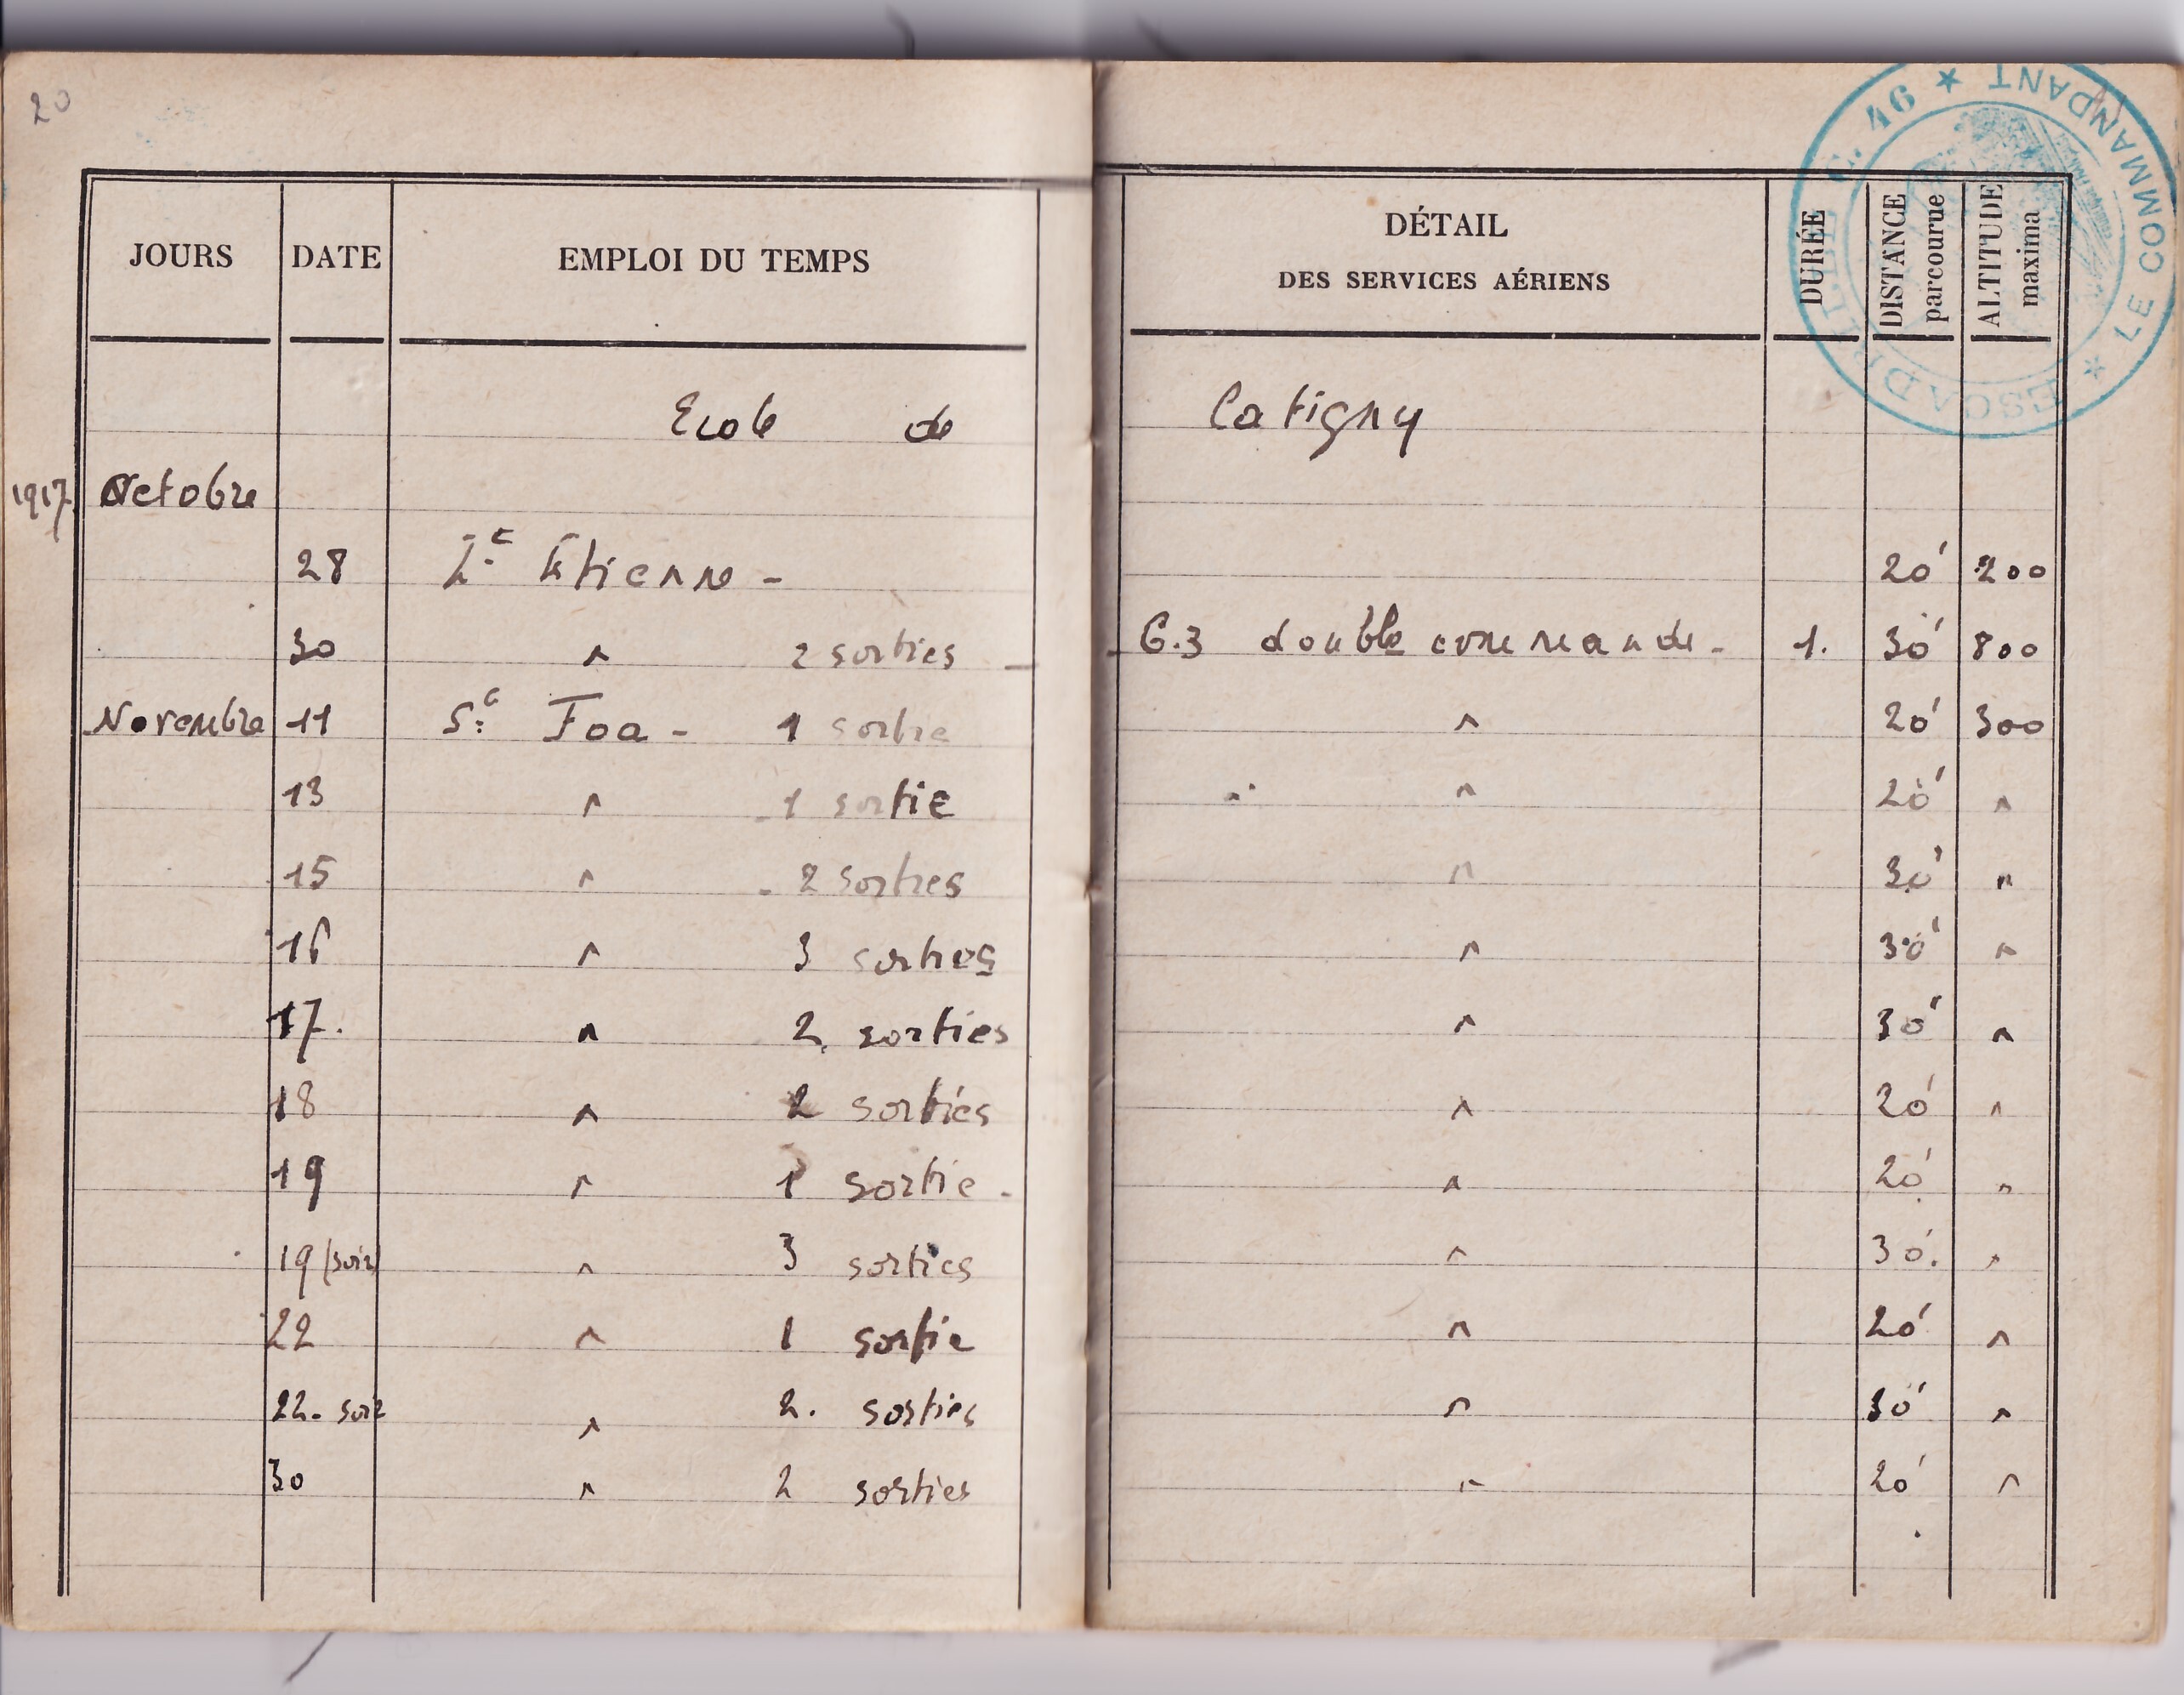 20
★ LE COMMANDANT ★ ESCADRILLE C. 46
JOURS DATE EMPLOI DU TEMPS DÉTAIL DES SERVICES AÉRIENS DURÉE DISTANCE parcourue ALTITUDE maxima
Ecole de Catigny
1917 Octobre
28 Etienne - 20' 200
30 ^ 2 sorties - G.3 double commande - 1. 30' 800
Novembre 11 Foa - 1 sortie ^ 20' 300
13 ^ - 1 sortie ^ 20' ^
15 ^ - 2 sorties ^ 30' ^
16 ^ 3 sorties ^ 30' ^
17. ^ 2 sorties ^ 30' ^
18 ^ 2 sorties ^ 20' ^
19 ^ 1 sortie - ^ 20' ^
19 (soir) ^ 3 sorties ^ 30' ^
22 ^ 1 sortie ^ 20' ^
22 - soir ^ 2. sorties ^ 30' ^
30 ^ 2 sorties ^ 20' ^